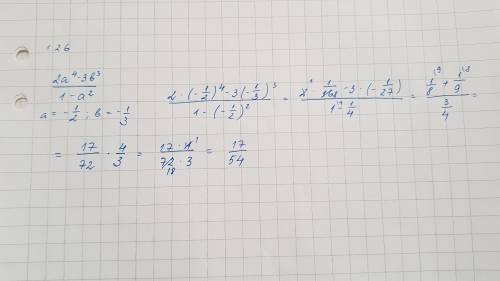 1.26
(2a⁴-3в³)/(1-a²)
a = -1/2; в = -1/3
(2·(-1/2)⁴-3(-1/3)³)/(1-(-1/2)²) = (2·1/168-3·(-1/27))/(1-1/4) = (1/8+1/9)/(3/4) =
= 17/72 · 4/3 = (17·4)/(72·3) = 17/54